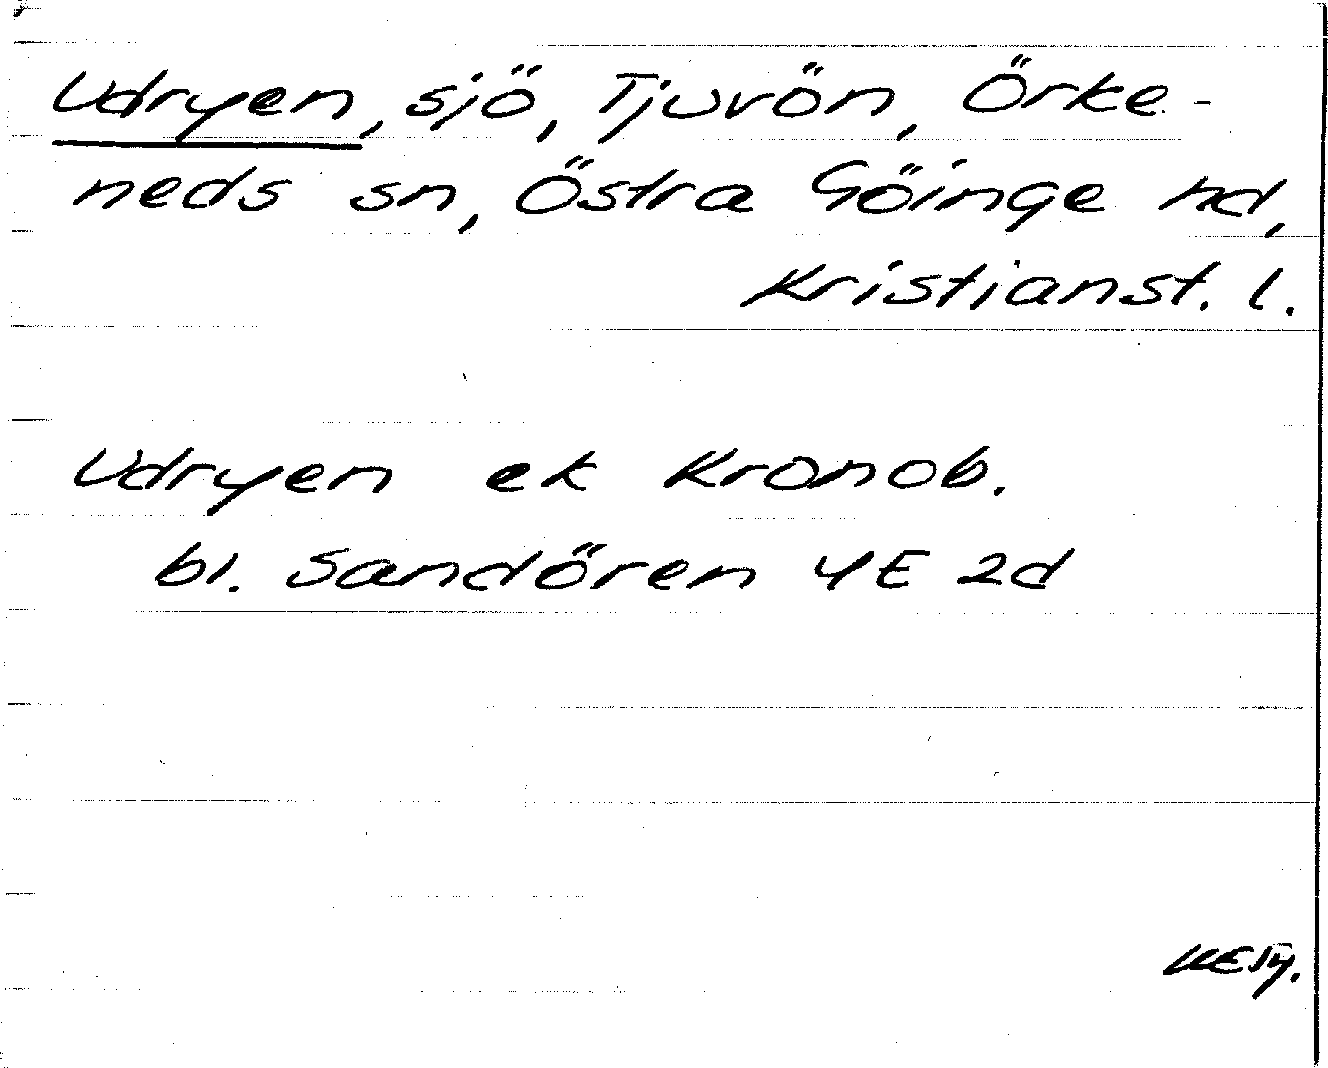 Udryen, sjö, Tjuvön, Örke-
neds sn, Östra Göinge hd,
Kristianst. l.
Udryen ek Kronob.
bl. Sandören 4E 2d